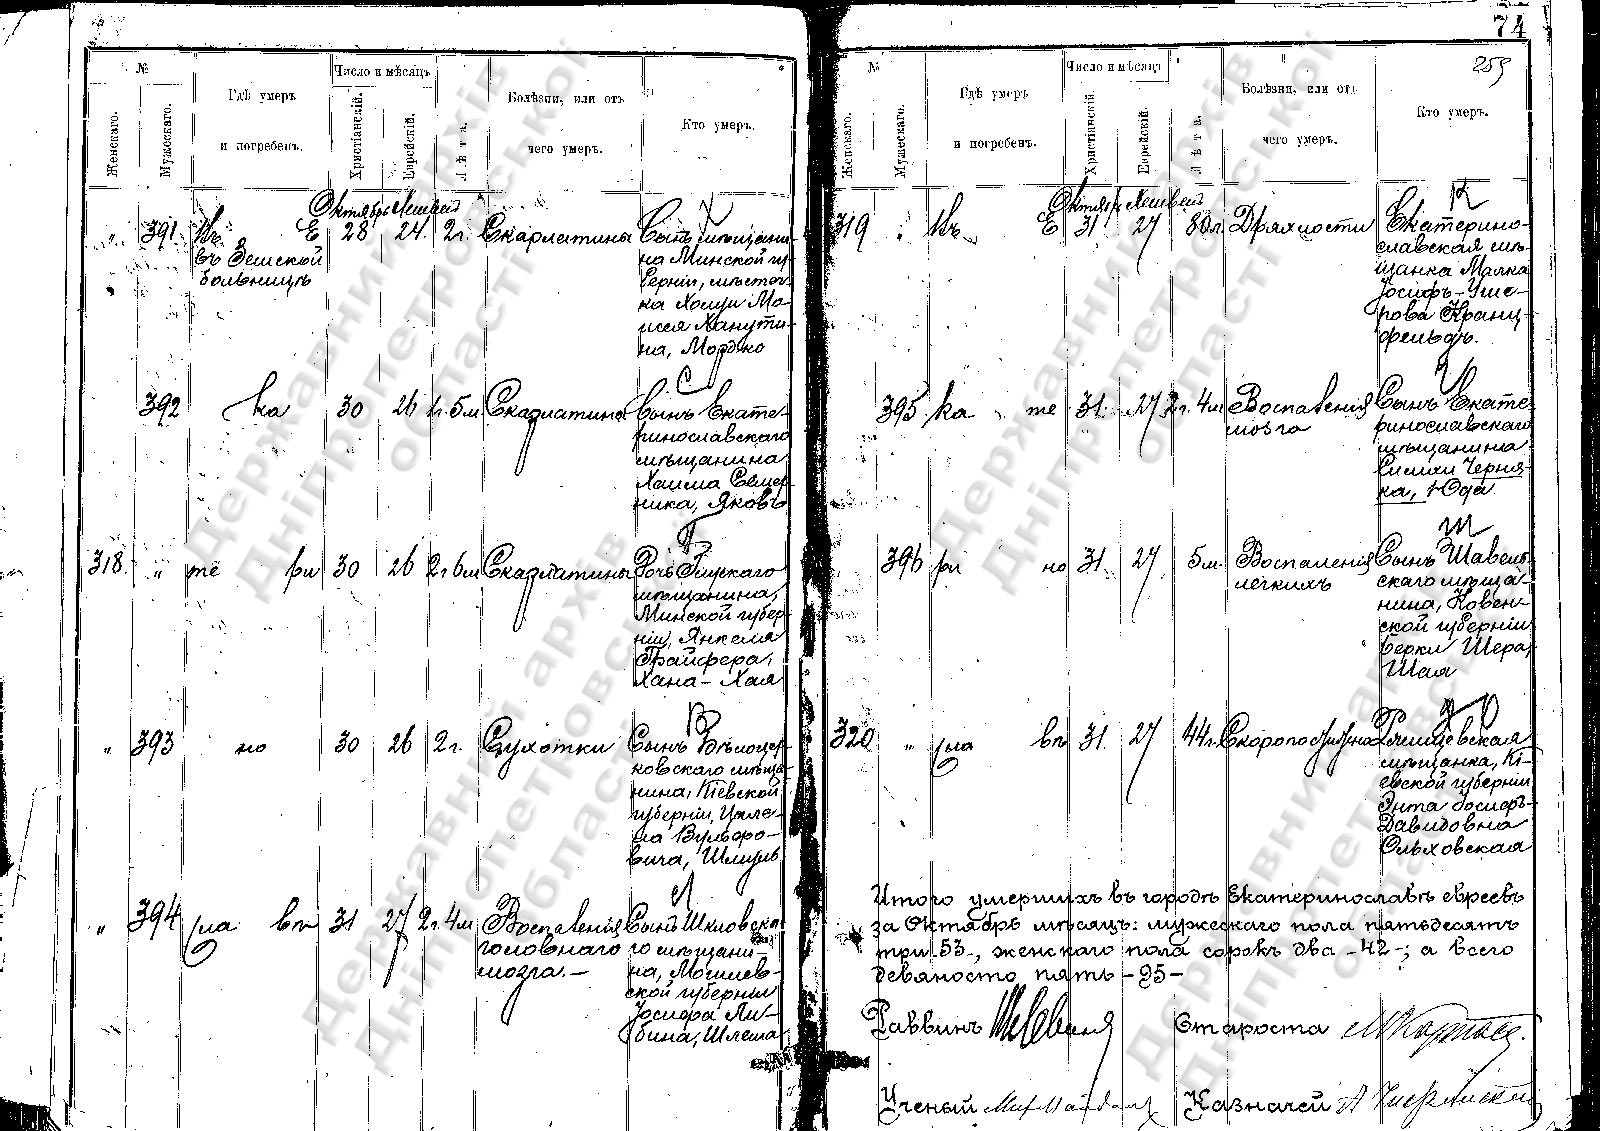 74
259
№
Женскаго.
Мужескаго.
Гдѣ умеръ
и погребенъ.
Число и мѣсяцъ
Христіанскій.
Еврейскій.
Лѣта.
Болѣзни, или отъ
чего умеръ.
Кто умеръ.
Октябрь Хешвенъ
" 391 Въ Е 28 24 2 г. Скарлатины
въ Земской
больницѣ
Сынъ мѣщани-
на Минской гу-
берніи, мѣстеч-
ка Холуи Мо-
исея Ханути-
на, Мордко
392 ка 30 26 1г 5м Скарлатина
С
Сынъ Екате-
ринославскаго
мѣщанина
Хаима
ника, Яковъ
318 " те ри 30 26 2г 6м Скарлатины
Дочь
мѣщанина,
Минской губер-
ніи, Янкеля
Грайфера,
Хана-Хая
" 393 но 30 26 2 г. Сухотки
В
Сынъ Бѣлоцер-
ковскаго мѣща-
нина, Кіевской
губерніи, Цале-
ла Вульфо-
вича, Шмуль
" 394 сла въ 31 27 2г. 4м Воспаленія
головного
мозга.-
Л
Сынъ Шкловска-
го мѣщани-
на, Могилев-
ской губерніи
Іосифа Ли-
бина, Шлема
№
Женскаго.
Мужескаго.
Гдѣ умеръ
и погребенъ.
Число и мѣсяцъ
Христіанскій.
Еврейскій.
Лѣта.
Болѣзни, или отъ
чего умеръ.
Кто умеръ.
Октябрь Хешвенъ
319 " Въ Е 31 27 80 л. Дряхлости
К
Екатерино-
славская мѣ-
щанка Малка
Іосифъ-Уше-
рова Кранц-
фельдъ.
395 ка те 31 27 2г. 4м Воспаленія
мозга
Ч
Сынъ Екате-
ринославскаго
мѣщанина
Симхи Черня-
ка, Юда
396 ри но 31 27 5м. Воспаленія
легкихъ
Ш
Сынъ Шавель-
скаго мѣща-
нина, Ковен-
ской губерніи
Берки Шера,
Шая
320 " сла въ 31 27 44 г. Скоропостижно
Ржищевская
мѣщанка, Кі-
евской губерніи
Энта Іосифъ-
Давидовна
Ольховская
Итого умершихъ въ городѣ Екатеринославѣ евреевъ
за Октябрь мѣсяцъ: мужескаго пола пятьдесятъ
три 53-, женскаго пола сорокъ два -42-; а всего
девяносто пять -95-
Раввинъ Староста
Ученый Казначей
Державний архів
Дніпропетровської
області